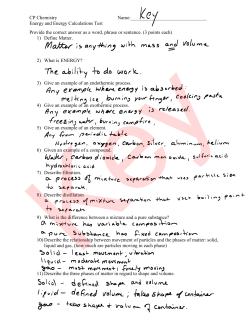 CP Chemistry Name: Key
Energy and Energy Calculations Test
Provide the correct answer as a word, phrase or sentence. (3 points each)
1) Define Matter.
Matter is anything with mass and volume
2) What is ENERGY?
The ability to do work.
3) Give an example of an endothermic process.
Any example where energy is absorbed
melting ice, burning your finger, cooking pasta
4) Give an example of an exothermic process.
Any example where energy is released.
firewood, burning campfire,
5) Give an example of an element.
Any from periodic table
Hydrogen, oxygen, Carbon, Silver, aluminum, helium
6) Given an example of a compound.
Water, Carbon dioxide, Carbon monoxide, sulfuric acid
hydrochloric acid
7) Describe filtration.
a process of mixture separation that uses particle size
to separate.
8) Describe distillation.
a process of mixture separation that uses boiling point
to separate
9) What is the difference between a mixture and a pure substance?
a mixture has variable composition
a pure substance has fixed composition
10) Describe the relationship between movement of particles and the phases of matter: solid,
liquid and gas. (how much are particles moving in each phase)
Solid - least movement, vibration
liquid - moderate movement
gas - most movement, freely moving
11) Describe the three phases of matter in regard to shape and volume.
Solid - defined shape and volume
liquid - defined volume; takes shape of container
gas - takes shape + volume of container.